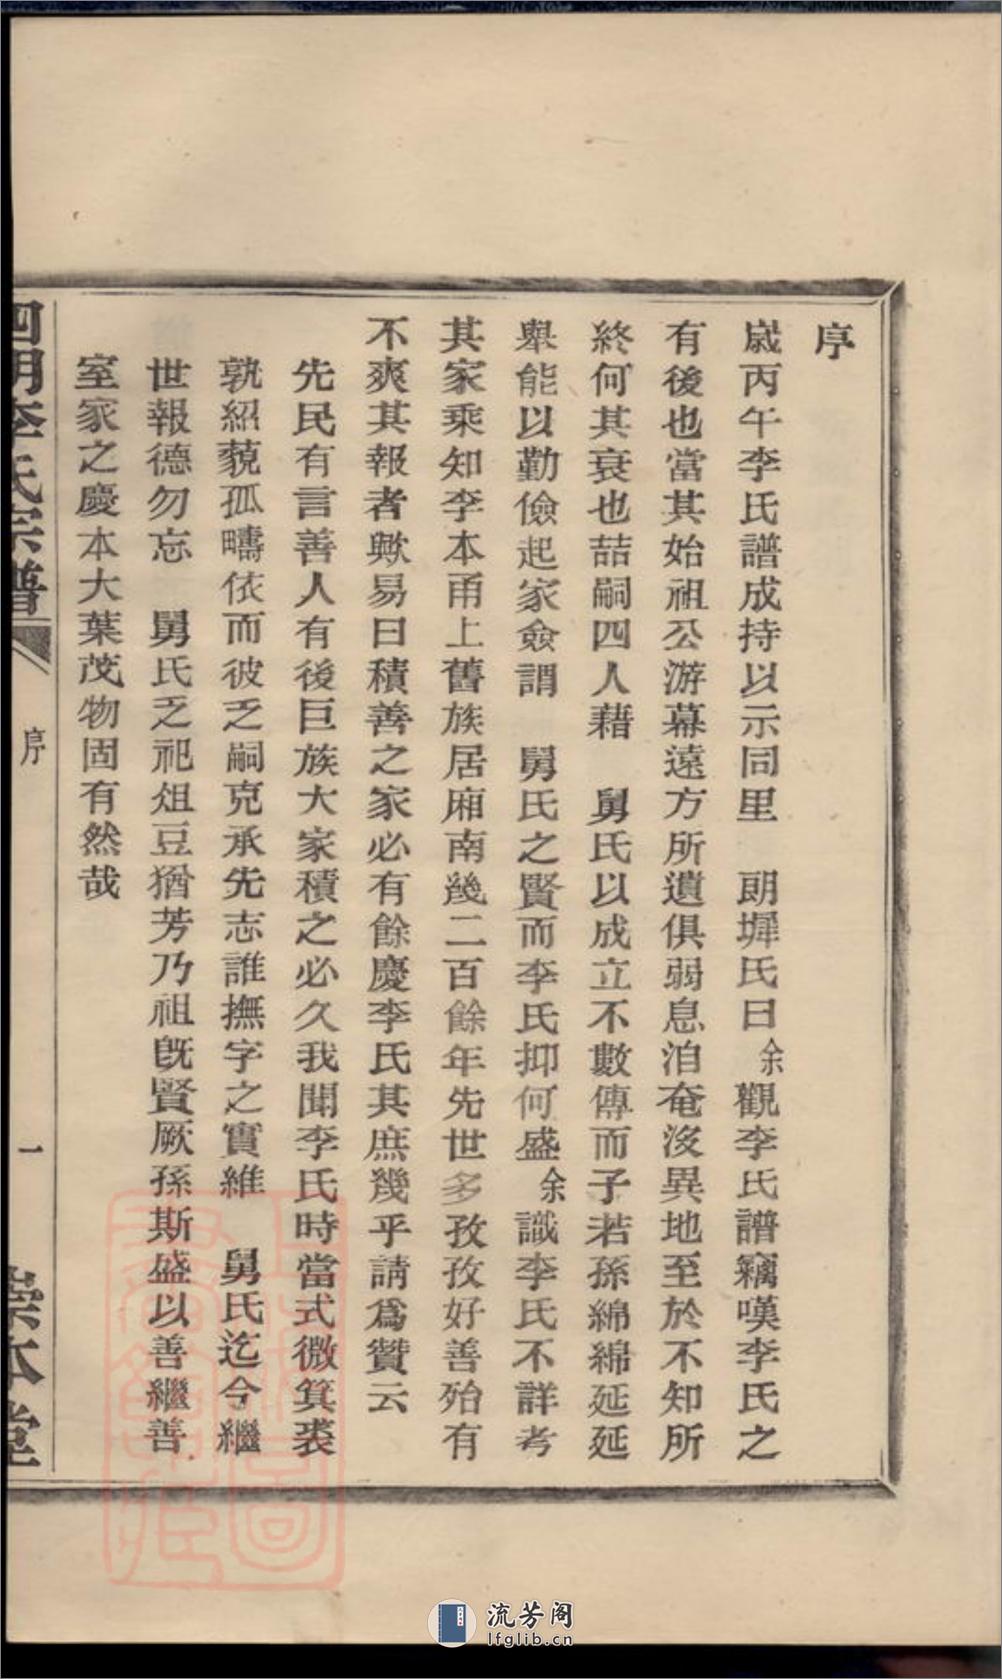 序
歲丙午李氏譜成持以示同里　朗墀氏曰余觀李氏譜竊嘆李氏之
有後也當其始祖公游幕遠方所遺俱弱息洎奄沒異地至於不知所
終何其衰也喆嗣四人藉　舅氏以成立不數傳而子若孫綿綿延延
舉能以勤儉起家僉謂　舅氏之賢而李氏抑何盛余識李氏不詳考
其家乘知李本甬上舊族居廂南幾二百餘年先世多孜孜好善殆有
不爽其報者歟易曰積善之家必有餘慶李氏其庶幾乎請爲贊云
先民有言善人有後巨族大家積之必久我聞李氏時當式微箕裘
孰紹藐孤疇依而彼乏嗣克承先志誰撫字之實維　舅氏迄今繼
世報德勿忘　舅氏乏祀俎豆猶芳乃祖旣賢厥孫斯盛以善繼善
室家之慶本大葉茂物固有然哉
四明李氏宗譜
序
一
崇本堂
流芳阁
lfglib.cn